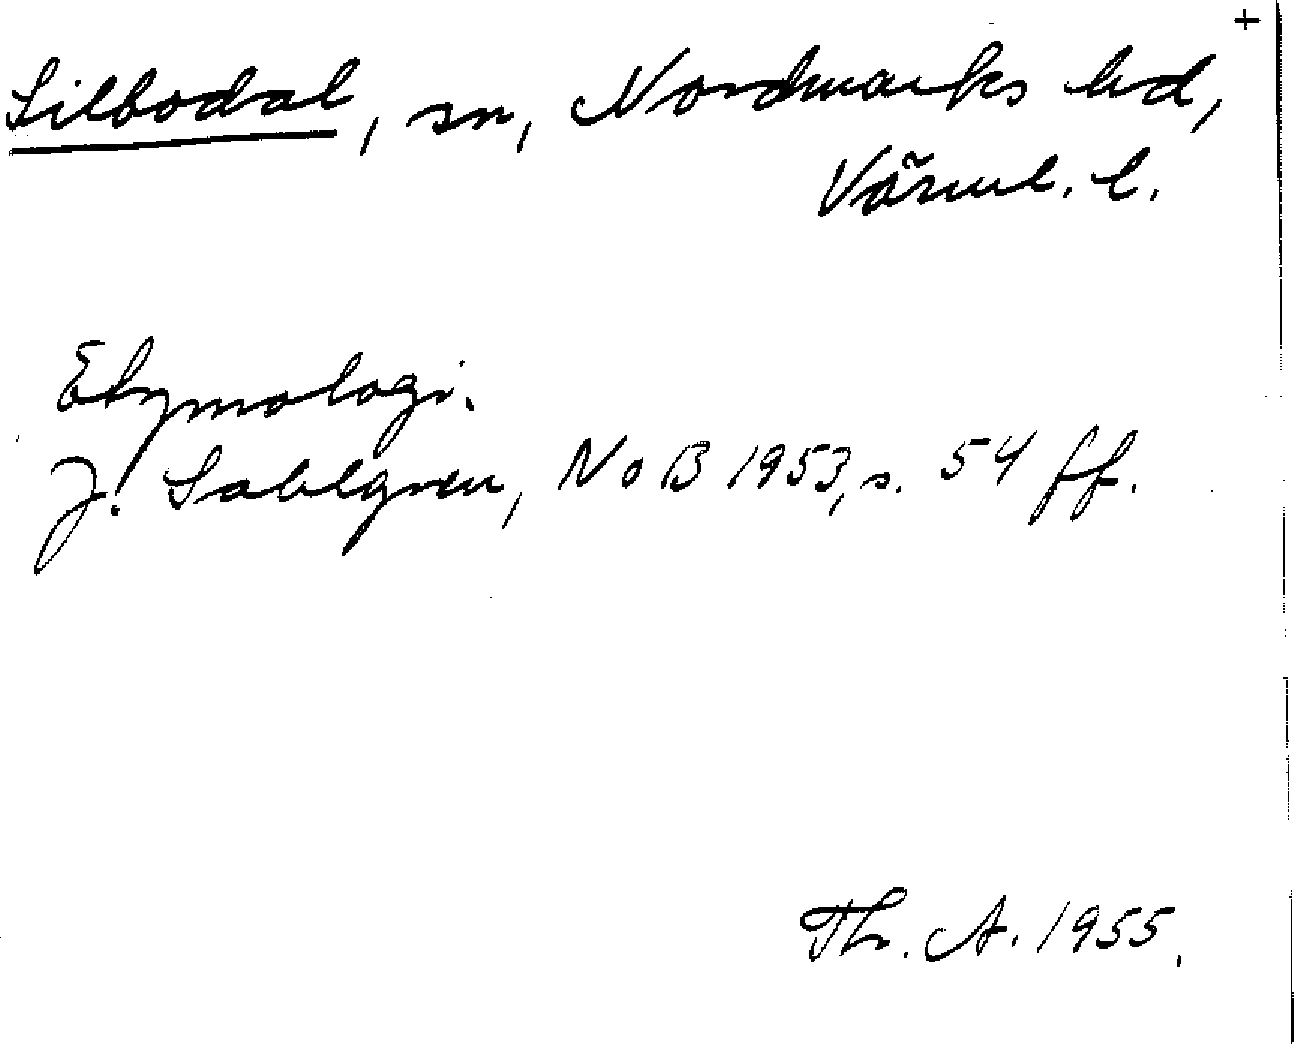 +
Silbodal, sn, Nordmarks hd,
Värml. l.
Etymologi.
J. Sahlgren, NoB 1953, s. 54 ff.
Th. A. 1955.